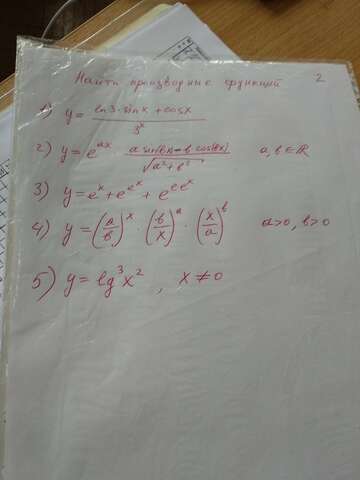 Найти производные функций 2
1) y = (ln3·sinx + cosx) / 3^x
2) y = e^(ax) · (a sin(bx) - b cos(bx)) / √(a² + b²) a, b ∈ ℝ
3) y = e^x + e^(e^x) + e^(e^(e^x))
4) y = (a/b)^x · (b/x)^a · (x/a)^b a>0, b>0
5) y = lg³x², x ≠ 0